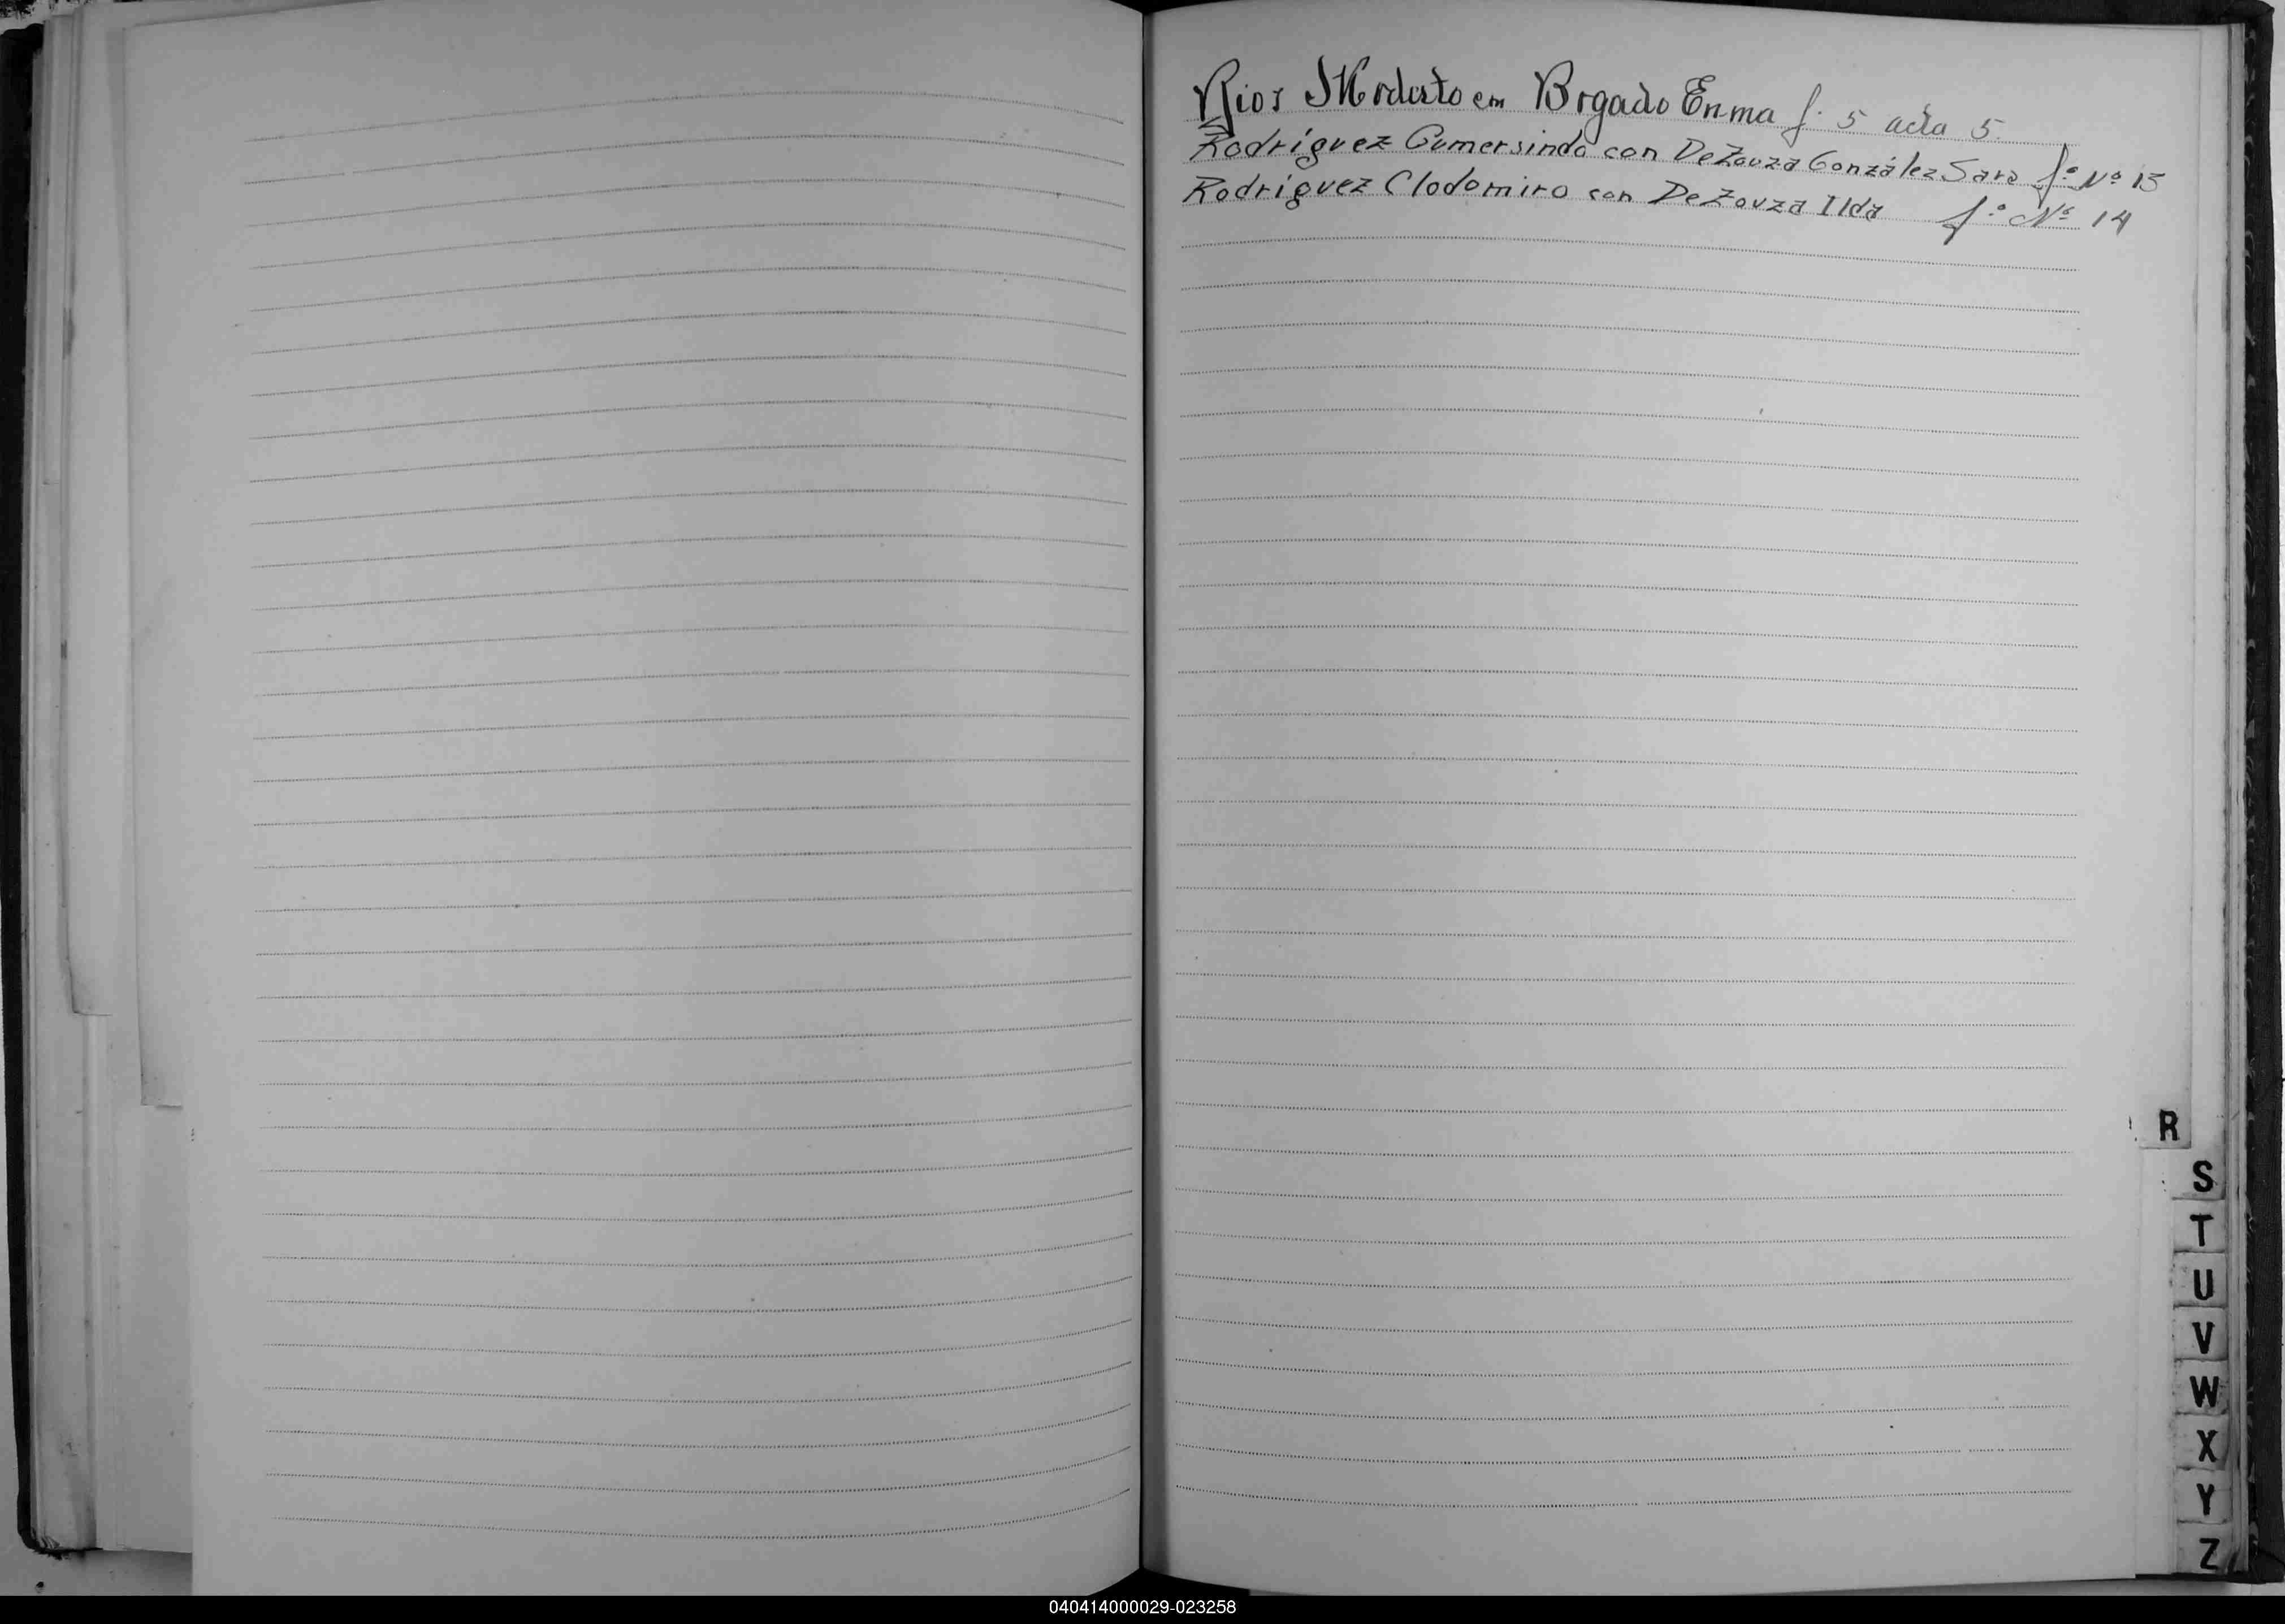 Rios Modesto con Bogado Enma f. 5 acta 5.
Rodríguez Gumersindo con DeZouza González Sara fº Nº 13
Rodríguez Clodomiro con DeZouza Ilda fº Nº 14
R
S
T
U
V
W
X
Y
Z
040414000029-023258